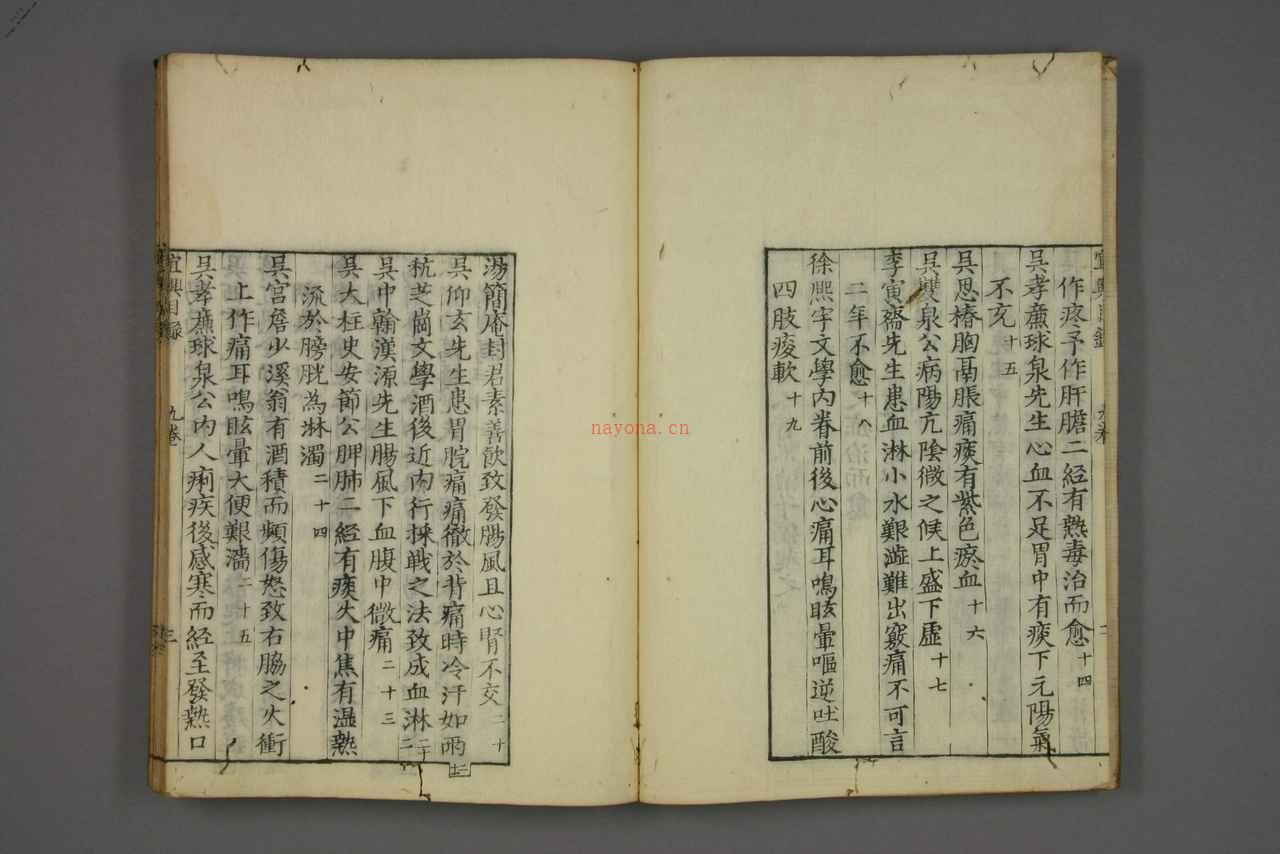 宜興目錄 九卷 二
作疼予作肝膽二經有熱毒治而愈 十四
吳孝廉球泉先生心血不足胃中有痰下元陽氣
不充 十五
吳思椿胸鬲脹痛痰有紫色瘀血 十六
吳雙泉公病陽亢陰微之候上盛下虛 十七
李寅齋先生患血淋小水艱澁難出竅痛不可言
二年不愈 十八
徐熙宇文學內眷前後心痛耳鳴眩暈嘔逆吐酸
四肢痠軟 十九
湯簡庵封君素善飲致發腸風且心腎不交 二十
吳仰玄先生患胃脘痛痛徹於背痛時冷汗如雨 二十一
杭芝崗文學酒後近內行採戰之法致成血淋 二十二
吳中翰漢源先生腸風下血腹中微痛 二十三
吳大柱史安節公脾肺二經有痰火中焦有濕熱
流於膀胱為淋濁 二十四
吳宮詹少溪翁有酒積而頻傷怒致右脇之火衝
上作痛耳鳴眩暈大便艱濇 二十五
吳孝廉球泉公內人痢疾後感寒而經至發熱口
宜興目錄 九卷 三
nayona.cn